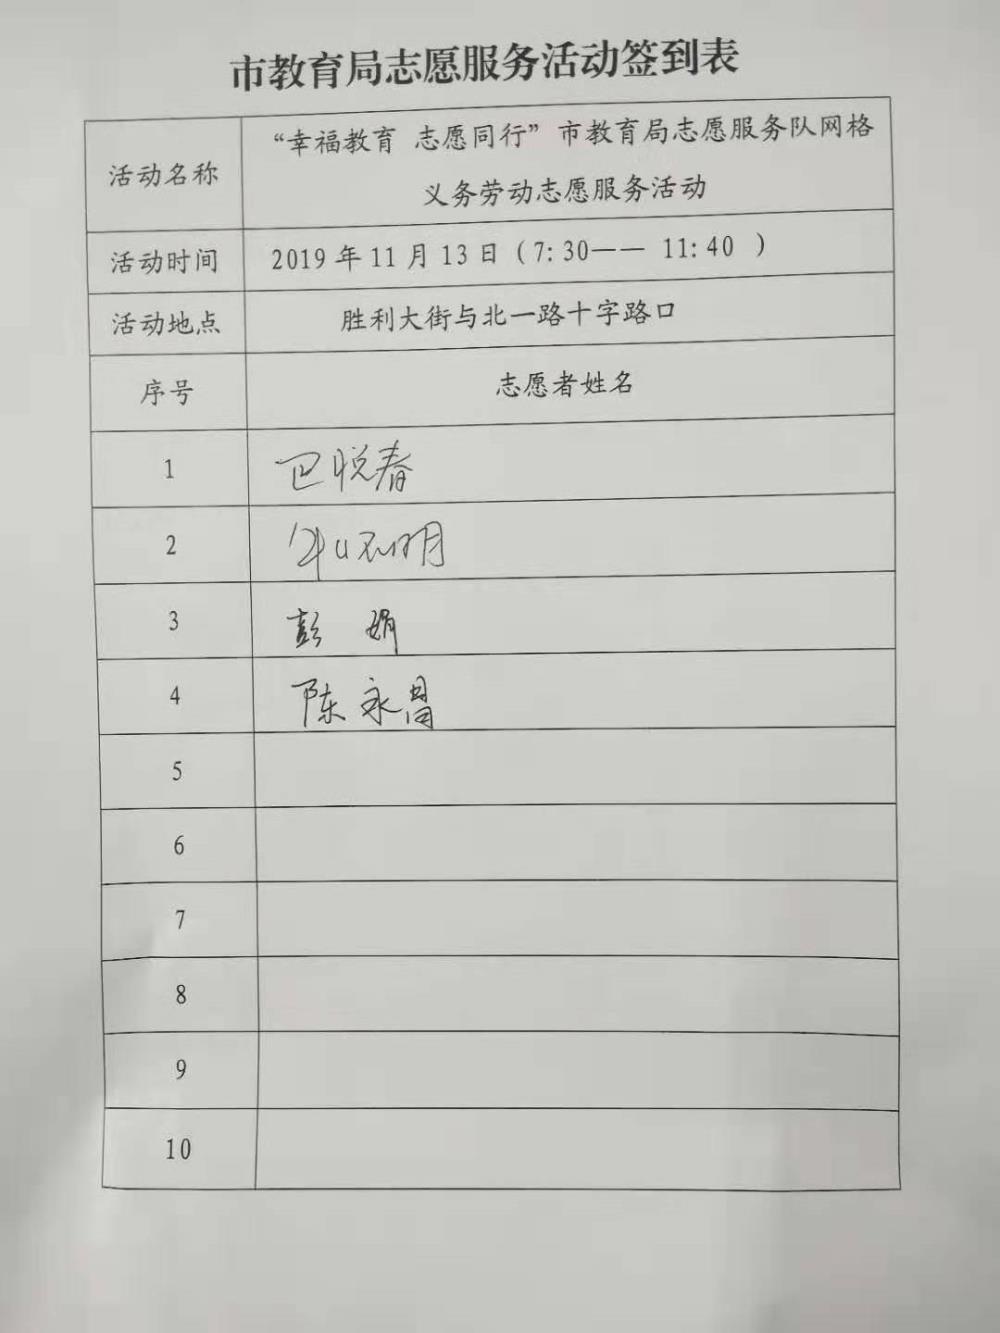 市教育局志愿服务活动签到表
活动名称
“幸福教育 志愿同行”市教育局志愿服务队网格
义务劳动志愿服务活动
活动时间
2019年11月13日(7:30—— 11:40 )
活动地点
胜利大街与北一路十字路口
序号
志愿者姓名
1
巴悦春
2
3
彭 娟
4
陈永昌
5
6
7
8
9
10